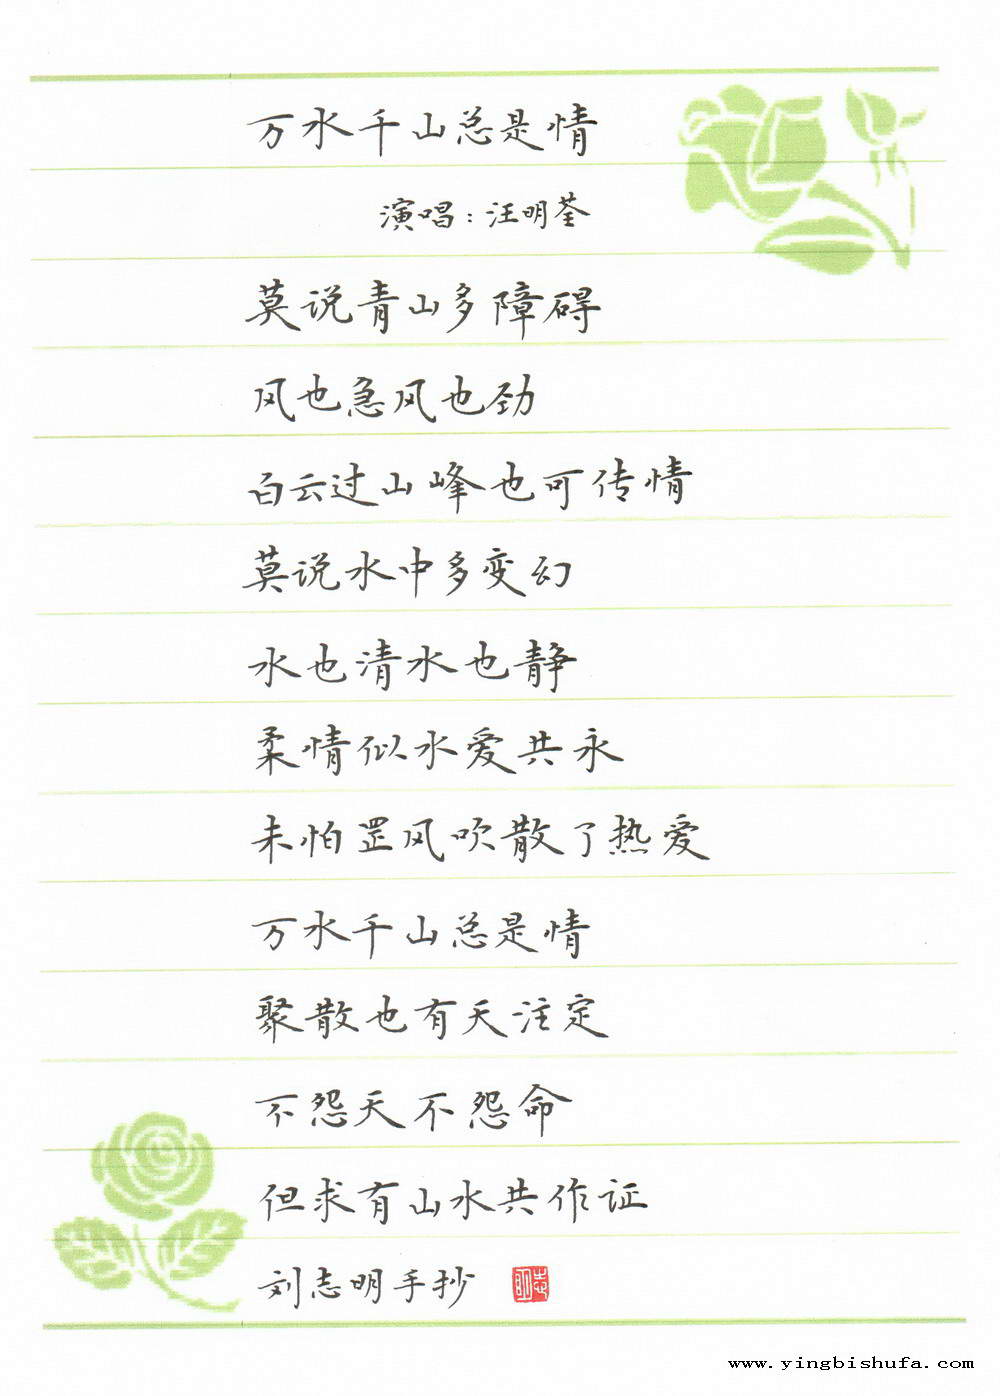 万水千山总是情
演唱：汪明荃
莫说青山多障碍
风也急风也劲
白云过山峰也可传情
莫说水中多变幻
水也清水也静
柔情似水爱共永
未怕罡风吹散了热爱
万水千山总是情
聚散也有天注定
不怨天不怨命
但求有山水共作证
刘志明手抄
志明
www.yingbishufa.com